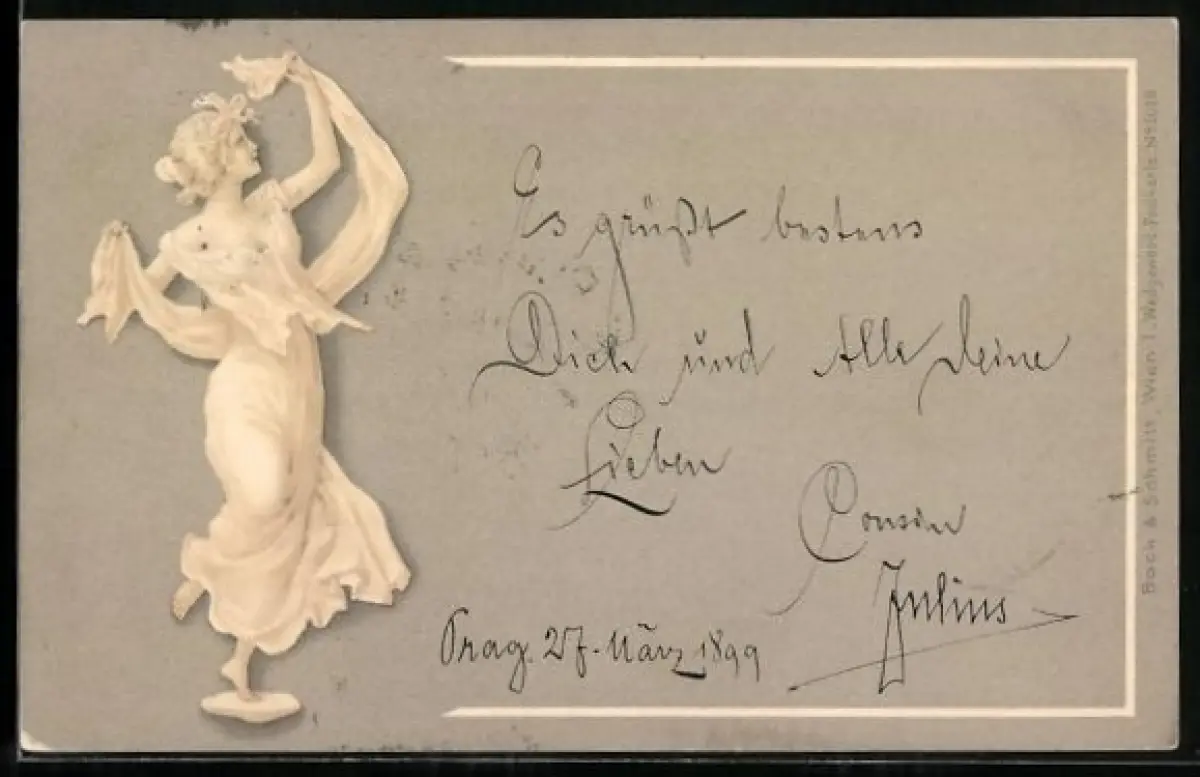 Es grüßt bestens
Dich und Alle Deine
Lieben
Cousin
Julius
Prag. 27. März 1899
Bach & Schmitt, Wien I., Wedgwood Postkarte No